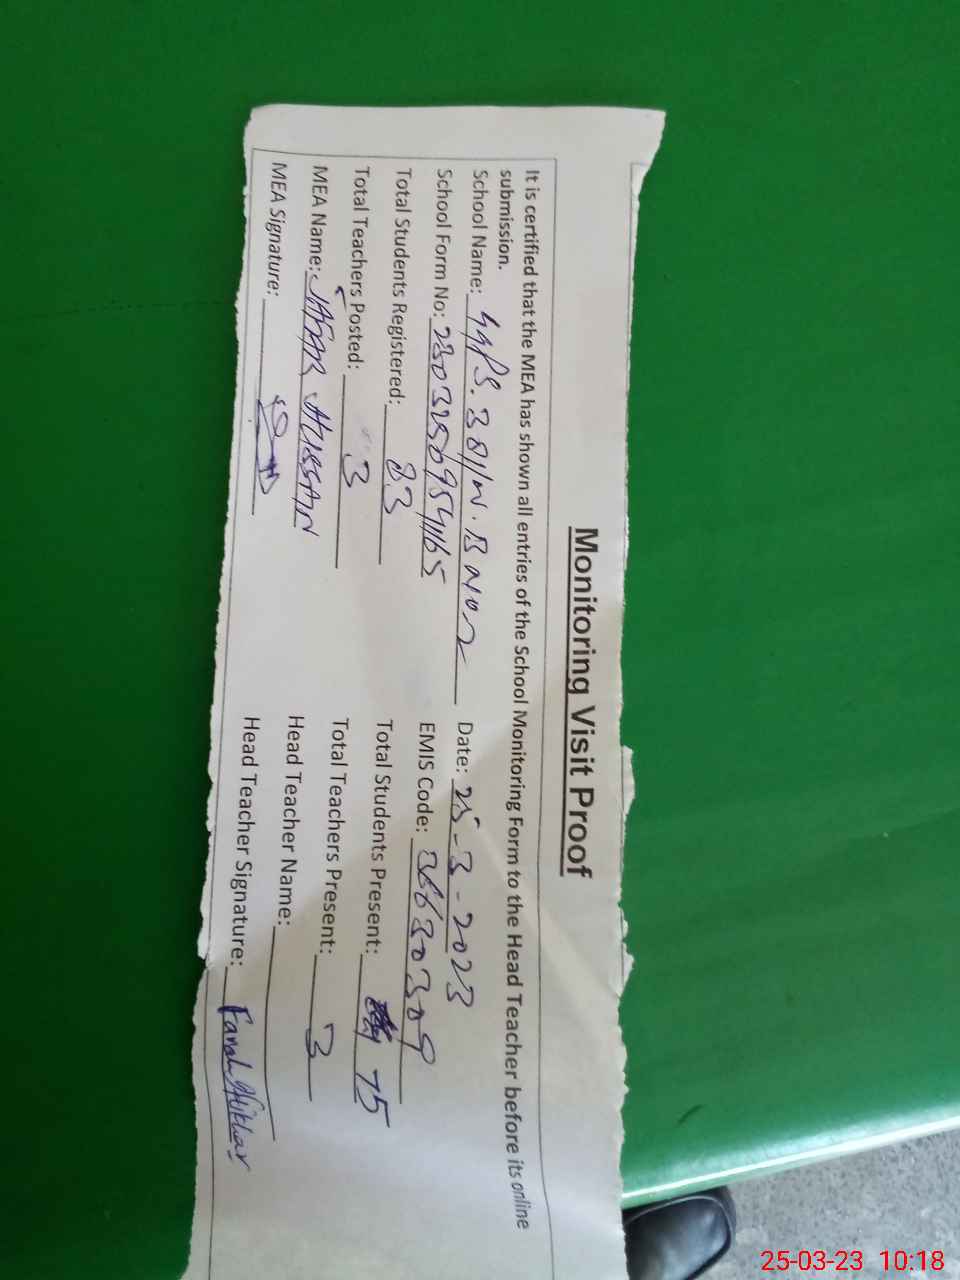 Monitoring Visit Proof
It is certified that the MEA has shown all entries of the School Monitoring Form to the Head Teacher before its online
submission.
School Name: GGPS. 38/1W.B No2 Date: 25-3-2023
School Form No: 2303250954165 EMIS Code: 36630309
Total Students Registered: 83 Total Students Present: 75
Total Teachers Posted: 3 Total Teachers Present: 3
MEA Name: JAFAR HUSSAN Head Teacher Name:
MEA Signature: Head Teacher Signature: Farah Iftikhar
25-03-23 10:18